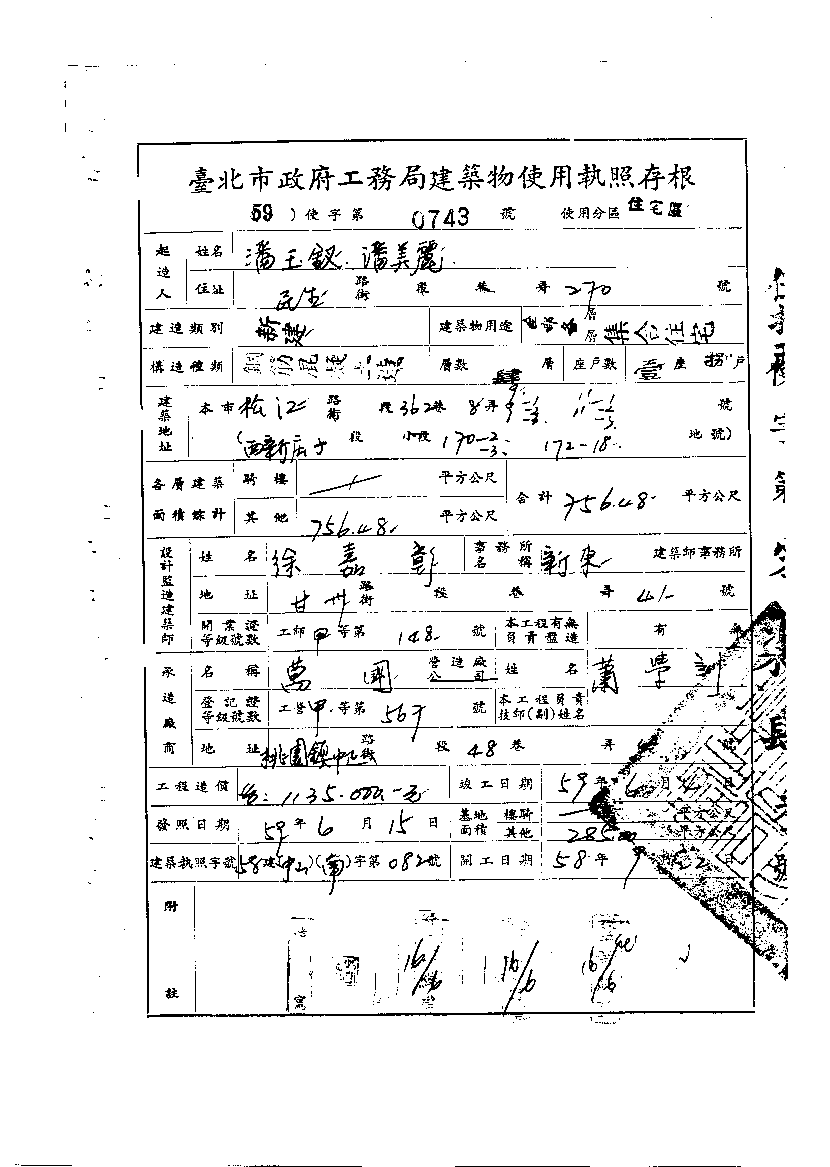 臺北市政府工務局建築物使用執照存根
59 ) 使字第 0743 號 使用分區 住宅區
起造人 姓名 潘玉釵 潘美麗
住址 民生 路街 段 巷 弄 270 號
建造類別 新建 建築物用途 層層 集合住宅
構造種類 鋼筋混凝土造 層數 肆 層 座戶數 壹 座 捌 戶
建築地址 本市 松江 路街 段 362 巷 8 弄 號
(西新庄子 段 小段 170-2 -3 172-18 地號)
各層建築面積綜計 騎樓 平方公尺 合計 756.48 平方公尺
其他 756.48 平方公尺
設計監造建築師 姓名 徐嘉彰 事務所名稱 新東 建築師事務所
地址 甘州 路街 段 巷 弄 41 號
開業證等級號數 工師 甲 等第 148 號 本工程有無負責監造 有
承造廠商 名稱 萬國 營造廠公司 姓名 蕭學
登記證等級號數 工營 甲 等第 號 本工程負責技師(副)姓名
地址 桃園鎮中 路街 段 48 巷 弄 號
工程造價 1135.000 元 竣工日期 59 年 6 月 日
發照日期 59 年 6 月 15 日 基地面積 騎樓 平方公尺
其他 285 平方公尺
建築執照字號 58 建(中山)(南)字第 082 號 開工日期 58 年 日
附註
16/6 16/6 16/6